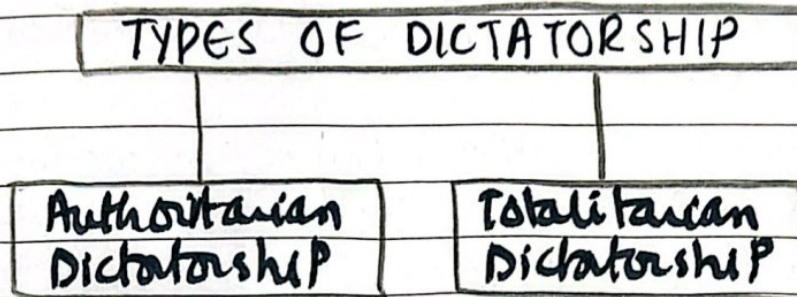 TYPES OF DICTATORSHIP
Authoritarian
Dictatorship
Totalitarian
Dictatorship